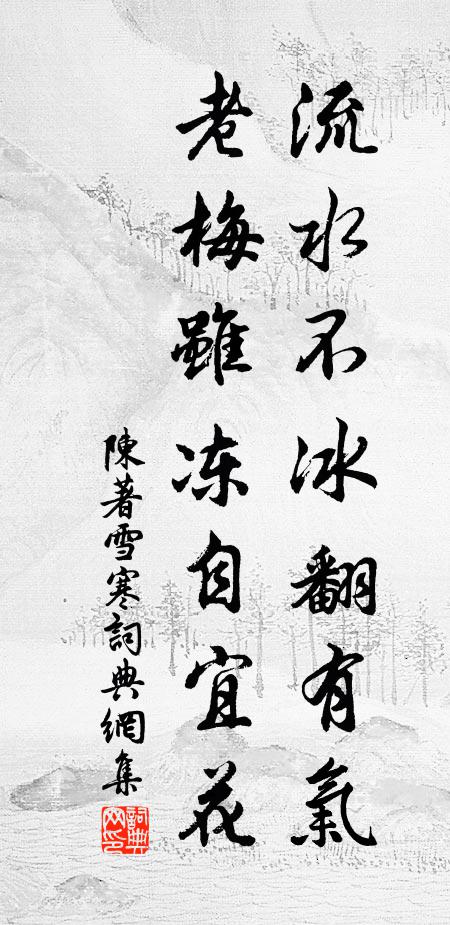 流水不冰翻有氣
老梅雖冻自宜花
陳著雪寒詞典網集
詞典網印